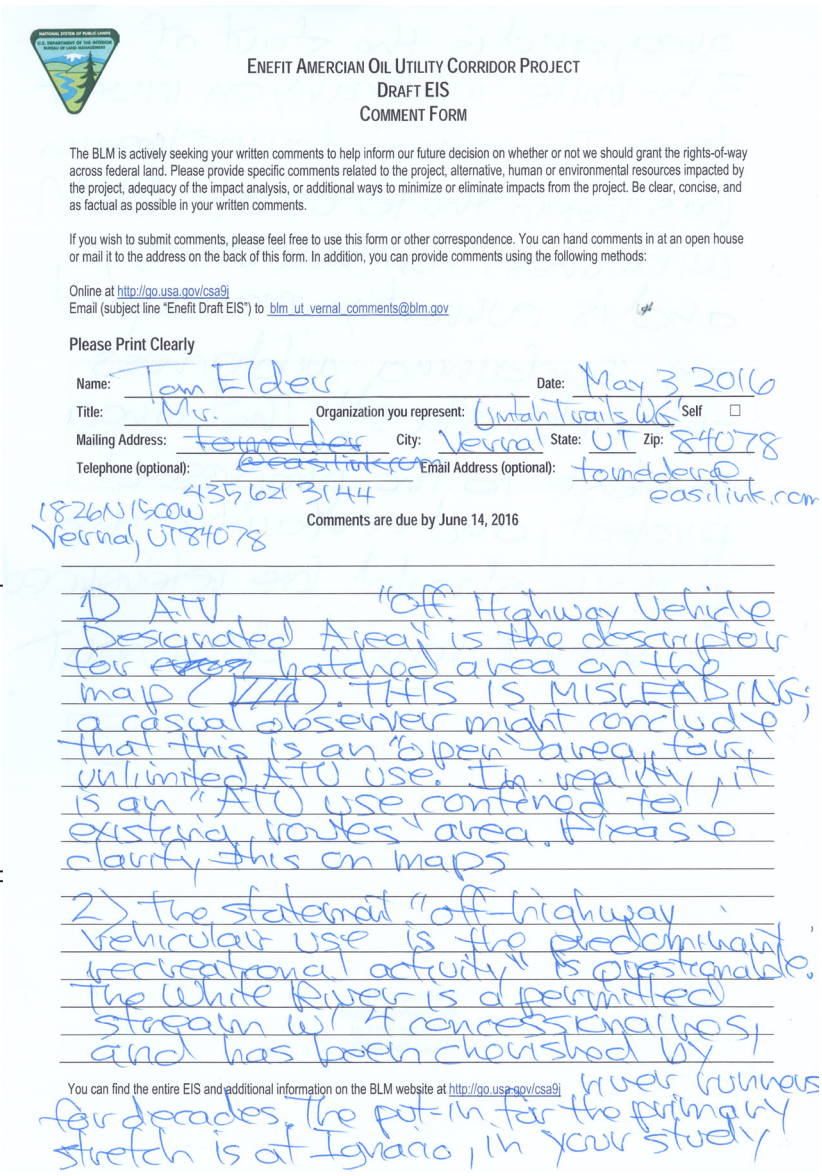 NATIONAL SYSTEM OF PUBLIC LANDS
U.S. DEPARTMENT OF THE INTERIOR
BUREAU OF LAND MANAGEMENT
ENEFIT AMERCIAN OIL UTILITY CORRIDOR PROJECT
DRAFT EIS
COMMENT FORM
The BLM is actively seeking your written comments to help inform our future decision on whether or not we should grant the rights-of-way
across federal land. Please provide specific comments related to the project, alternative, human or environmental resources impacted by
the project, adequacy of the impact analysis, or additional ways to minimize or eliminate impacts from the project. Be clear, concise, and
as factual as possible in your written comments.
If you wish to submit comments, please feel free to use this form or other correspondence. You can hand comments in at an open house
or mail it to the address on the back of this form. In addition, you can provide comments using the following methods:
Online at http://go.usa.gov/csa9j
Email (subject line “Enefit Draft EIS”) to blm_ut_vernal_comments@blm.gov
Please Print Clearly
Name: Tom Elder Date: May 3 2016
Title: Mr. Organization you represent: Uintah Trails WG Self
Mailing Address: tomelder City: Vernal State: UT Zip: 84078
Telephone (optional): @easilink.com Email Address (optional): tomelder@
435 621 3144 easilink.com
1826N 1500W
Vernal, UT 84078
Comments are due by June 14, 2016
1) ATV "Off Highway Vehicle
Designated Area" is the descriptor
for hatched area on the
map ( ). THIS IS MISLEADING;
a casual observer might conclude
that this is an "open" area, for
unlimited ATV use. In reality, it
is an "ATV use confined to
existing routes" area. Please
clarify this on maps
2) The statement "off-highway
vehicular use is the predominant
recreational activity" is questionable.
The White River is a permitted
stream w/ 4 concessionaires,
and has been cherished by
You can find the entire EIS and additional information on the BLM website at http://go.usa.gov/csa9j
river runners
for decades. The put-in for the primary
stretch is at Ignacio, in your study